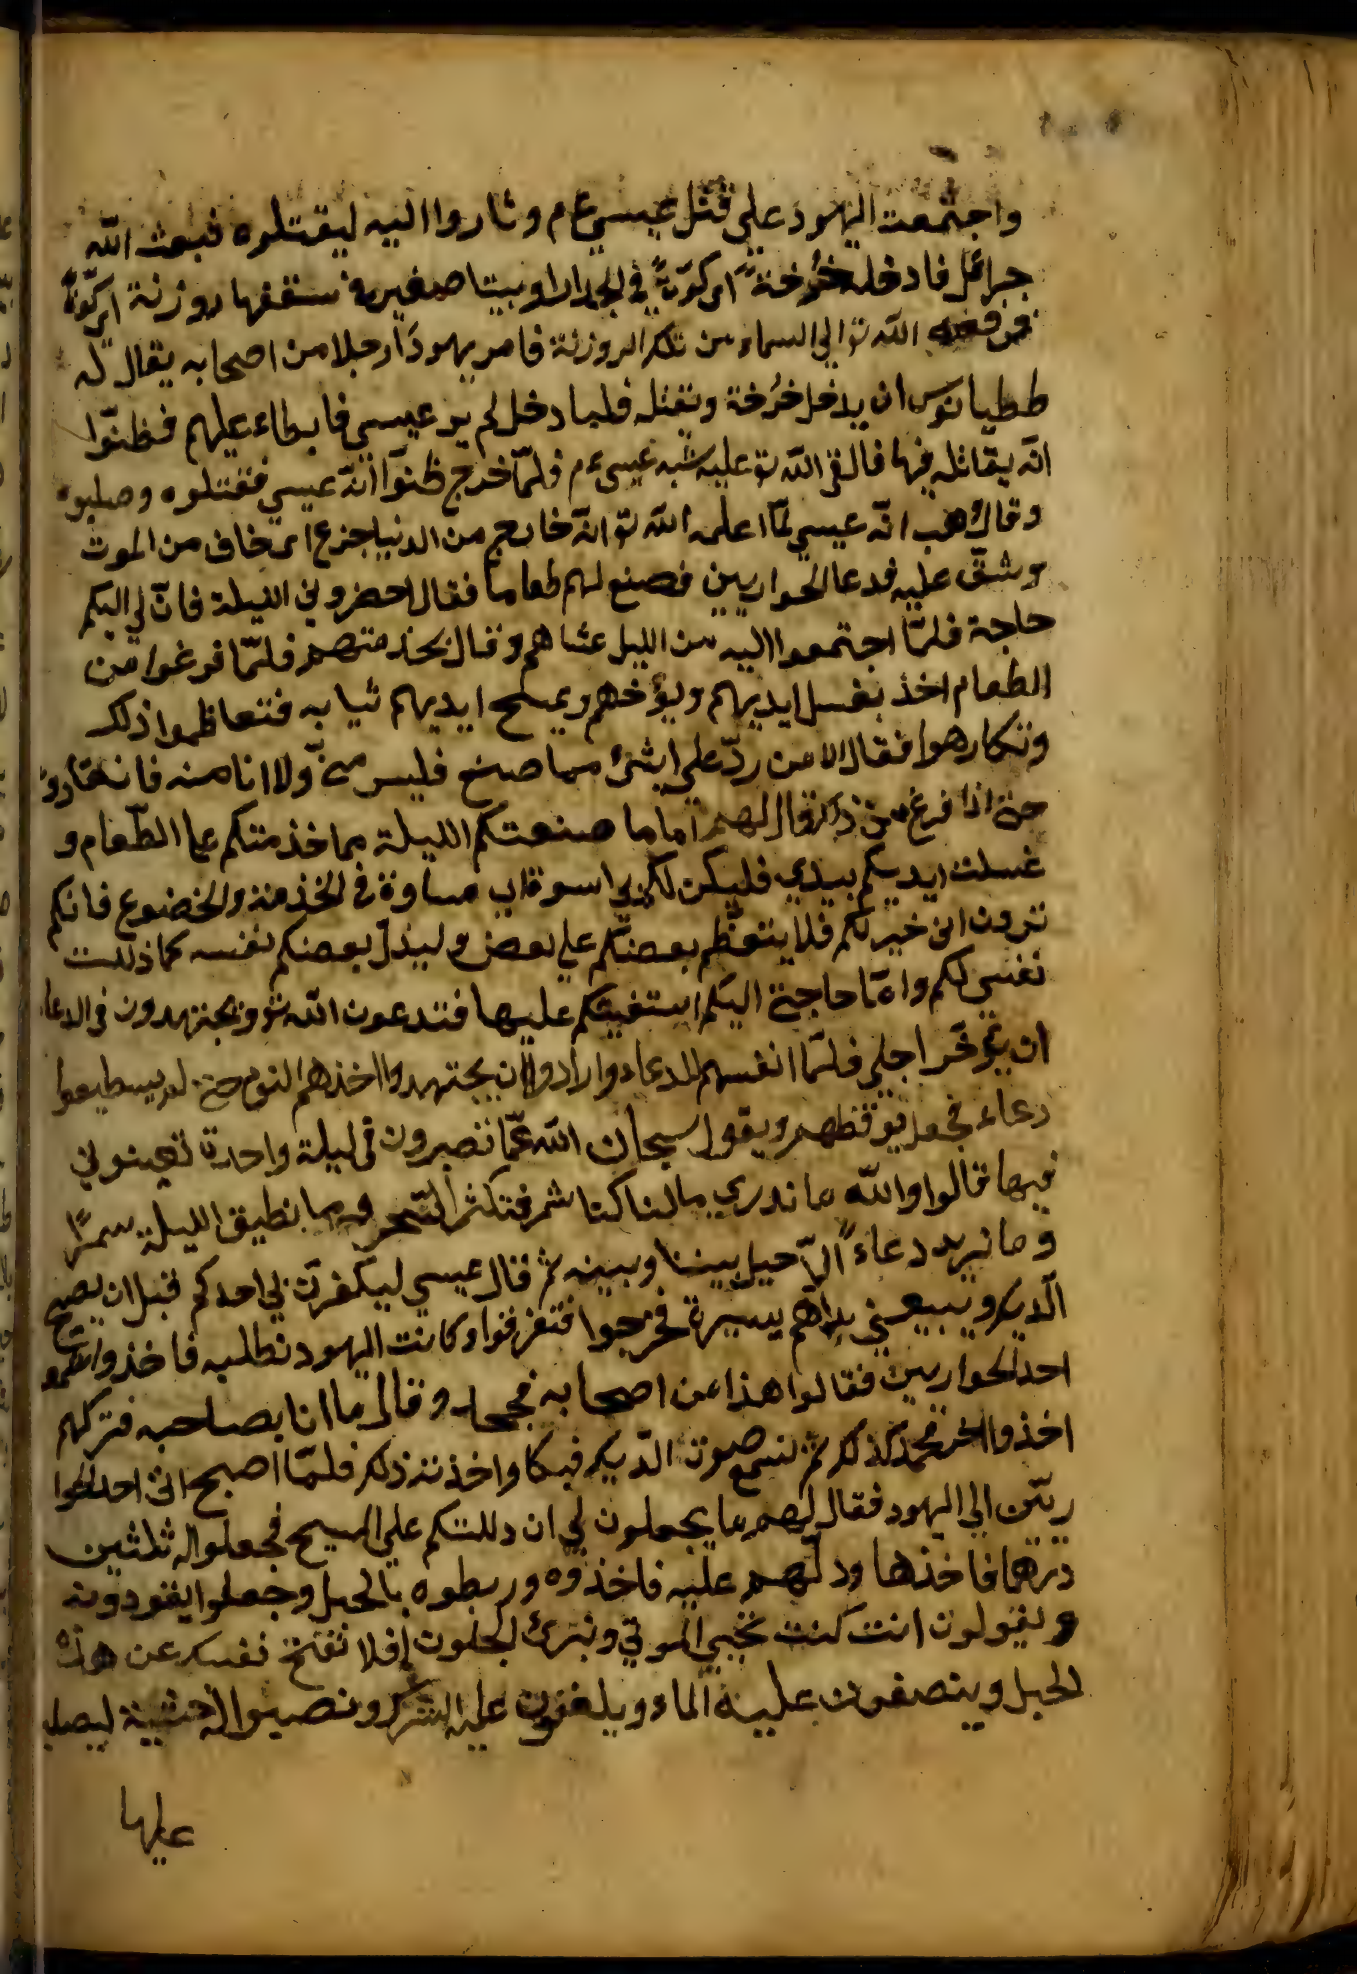 واجتمعت اليهود علي قتل عيسي عم وثاروا اليه ليقتلوه فبعث الله
جبرائل فادخله خُرخة اى كوّةً في الجدار او بيتا صغير في سقفها روزنة اى كوّةً
فرفعه الله تو الي السماء من تلك الروزنة فامر يهودا رجلا من اصحابه يقال له
ططيانوس ان يدخل خُرخة ويقتله فلما دخل لم ير عيسي فابطاء عليهم فظنّوا
انه يقاتله فيها فالقى الله تو عليه شبه عيسى عم فلمّا خرج ظنوّا انّه عيسي فقتلوه وصلبوه
وقال وهب انّه عيسي لمّا اعلمه الله تو انّه خارج من الدنيا جزع اى خاف من الموت
وشقّ عليه فدعا الحواريين فصنع لهم طعاما فقال احضروني الليلة فانّ لي اليكم
حاجة فلمّا اجتمعوا اليه من الليل عشاهم وقال يخدمتهم فلمّا فرغوا من
الطعام اخذ بغسل ايديهم ويوخهم ويمسح ايديهم ثيابه فتعاظموا ذلك
وتكارهوا فقال الا من ردّ علي ابشئ مما صنع فليس منّي ولا انا منه فانقادوا
حتى اذا فرغ من ذلك قال لهم اما ما صنعتكم الليلة مما خدمتكم علي الطّعام و
غسلت ايديكم بيدي فليكن لكم بي اسوة اى مساوة في الخدمة والخضوع فانكم
ترون انى خير لكم فلا يتعظّم بعضكم علي بعض وليبذل بعضكم نفسه كما ذللت
نفسي لكم وامّا حاجة اليكم استغيثكم عليها فتدعون الله تو وتجتهدون في الدعا
ان يؤخّر اجلي فلمّا انفسهم للدعاء وارادوا ان يجتهدوا اخذهم النوم حتى لم يسطيعوا
دعاء فجعل يوقظهم ويقول سبحان الله عمّا تصبرون في ليلة واحدة تعينوني
فيها قالوا والله ما ندري ما لنا كنا سمر فتكثر السّمر وما نطيق الليلة سمرًا
وما نريد دعاءً الّا حيل بيننا وبينه ثم قال عيسي ليكفرنّ لي احدكم قبل ان يصيح
الّديك ويبيعني بدراهم يسيرة فخرجوا فتفرقوا وكانت اليهود تطلبه فاخذوا شمعو
احد الحواريين فقالوا هذا من اصحابه فجحد وقال ما انا بصاحبه فتركهم
اخذوا اخر فجحد كذلك ثم لسمع صوت الدّيك فبكا واخذته ذلك فلمّا اصبح اتى احد الحوا
ريّين الي اليهود فقال لهم ما يجعلون لي ان دللتكم علي المسيح فجعلوا له ثلثين
درهما فاخذها ودلّهم عليه فاخذوه وربطوه بالحبل وجعلوا يقودونه
ويقولون انت كنت تحيي الموتي وتبرئ المجنون افلا تفتح نفسك عن هذه
الحبل ويبصقون عليه الماء ويلقون عليه الشوك ونصبوا له خشبة ليصلب
عليها